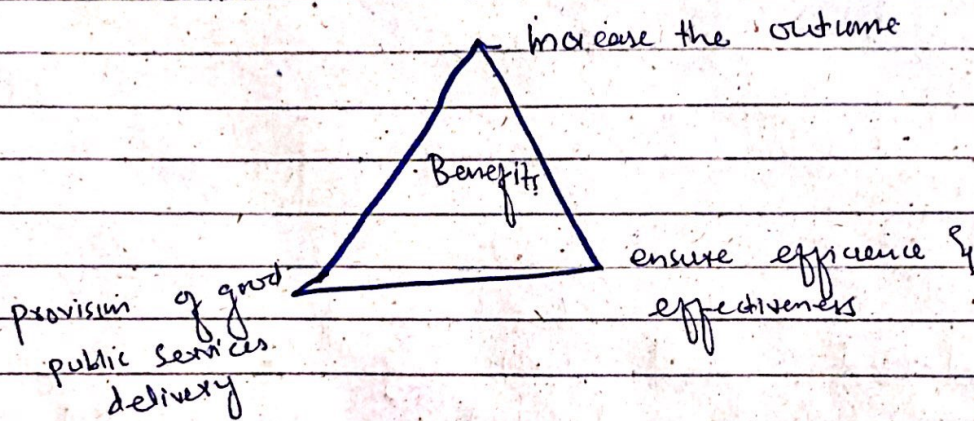 increase the outcome
Benefits
ensure efficience &
effectiveness
provision of good
public services
delivery